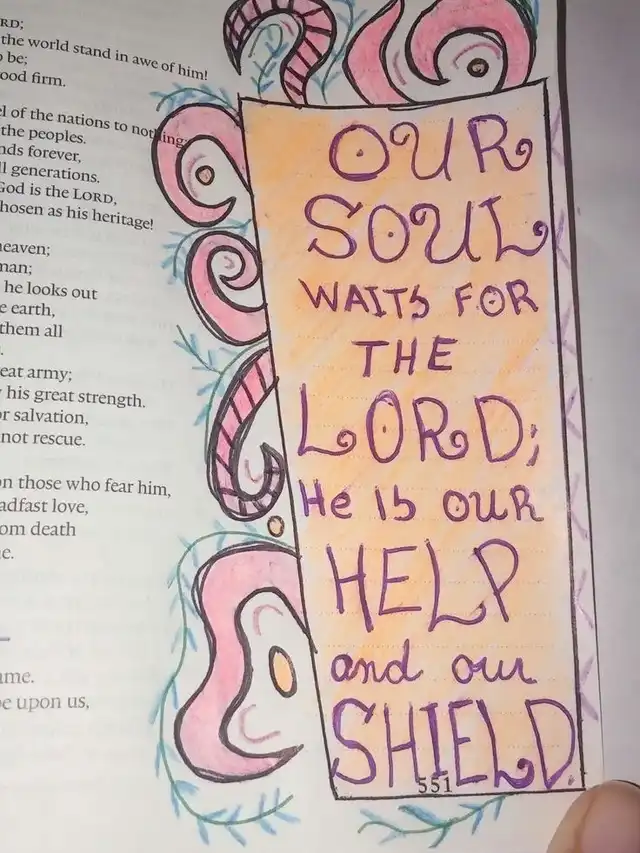 RD;
the world stand in awe of him!
be;
ood firm.
el of the nations to nothing
the peoples.
nds forever,
ll generations.
God is the LORD,
hosen as his heritage!
heaven;
man;
he looks out
e earth,
them all
eat army;
his great strength.
or salvation,
not rescue.
on those who fear him,
adfast love,
om death
e.
ame.
e upon us,
OUR
SOUL
WAITS FOR
THE
LORD;
He is OUR
HELP
and our
SHIELD.
551